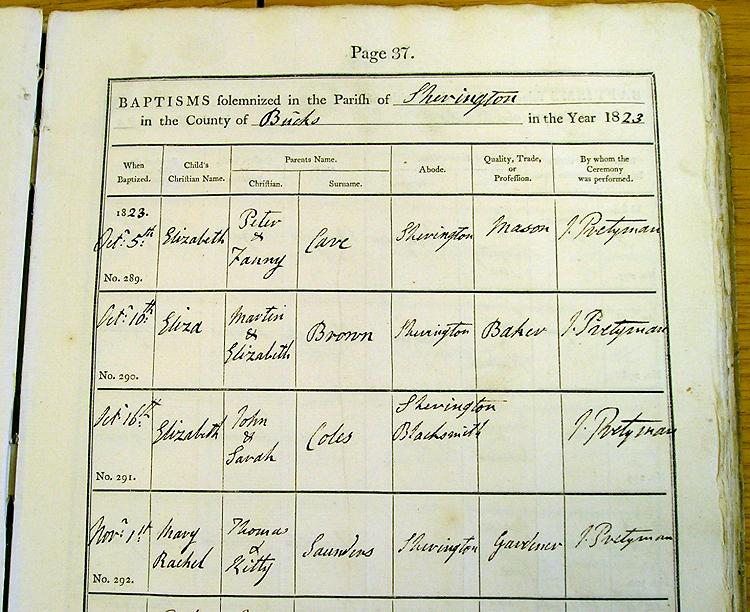 Page 37.
BAPTISMS solemnized in the Parish of Sherington
in the County of Bucks in the Year 1823
When Baptized. Child's Christian Name. Parents Name. Abode. Quality, Trade, or Profession. By whom the Ceremony was performed.
Christian. Surname.
1823.
Octr. 5th Elizabeth Peter & Fanny Cave Sherington Mason J. Pretyman
No. 289.
Octr. 10th Eliza Martin & Elizabeth Brown Sherington Baker J. Pretyman
No. 290.
Octr. 16th Elizabeth John & Sarah Coles Sherington Blacksmith J. Pretyman
No. 291.
Novr. 1st Mary Rachel Thomas & Kitty Saunders Sherington Gardener J. Pretyman
No. 292.